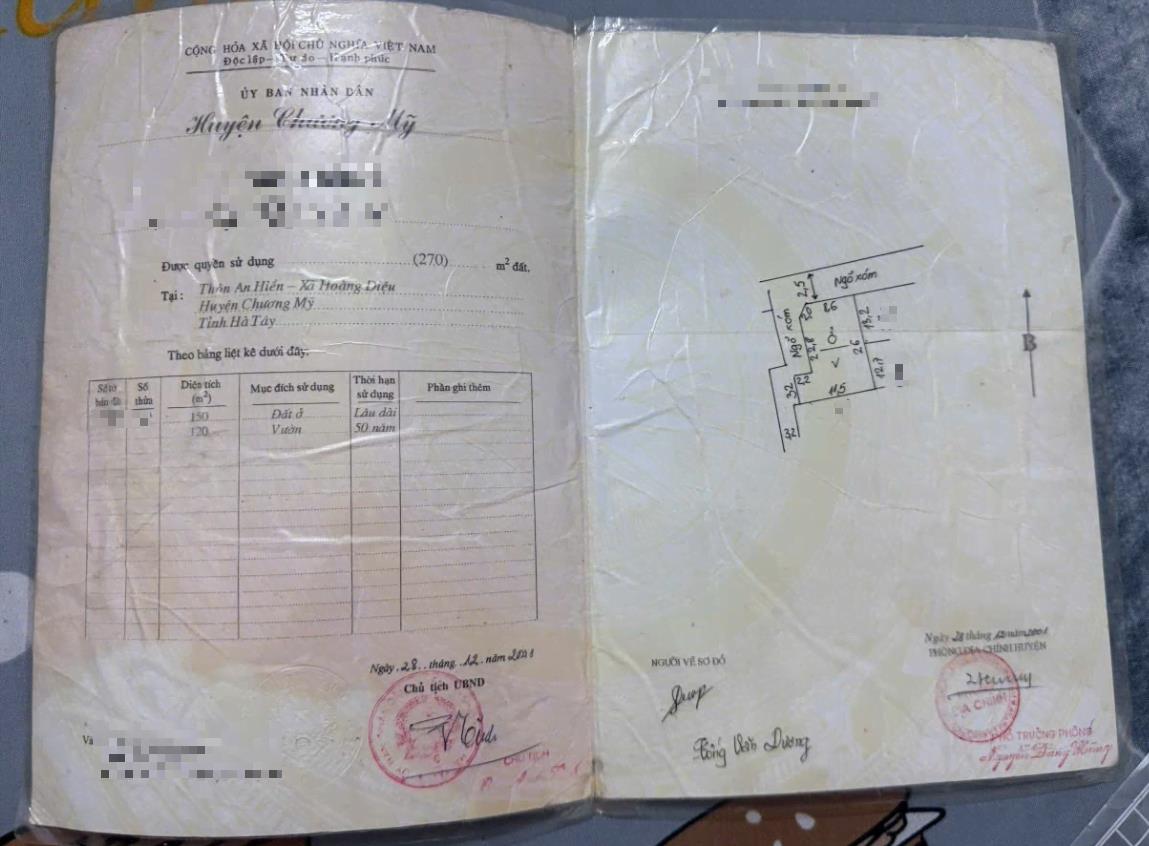 CỘNG HÒA XÃ HỘI CHỦ NGHĨA VIỆT NAM
Độc lập - Tự do - Hạnh phúc
ỦY BAN NHÂN DÂN
Huyện Chương Mỹ
Được quyền sử dụng (270) m² đất.
Tại : Thôn An Hiền - Xã Hoàng Diệu
Huyện Chương Mỹ
Tỉnh Hà Tây
Theo bảng liệt kê dưới đây:
Số tờ bản đồ Số thửa Diện tích (m²) Mục đích sử dụng Thời hạn sử dụng Phần ghi thêm
150 Đất ở Lâu dài
120 Vườn 50 năm
Ngày 28 tháng 12 năm 2001
Chủ tịch UBND
CHỦ TỊCH
Ngõ xóm
2,5
Ngõ xóm
13,2
26
12,7
22,8
2,2
3,2
11,5
3,2
B
Ngày 28 tháng 12 năm 2001
PHÒNG ĐỊA CHÍNH HUYỆN
NGƯỜI VẼ SƠ ĐỒ
Tống Văn Dương
PHÓ TRƯỞNG PHÒNG
Nguyễn Đăng Hùng